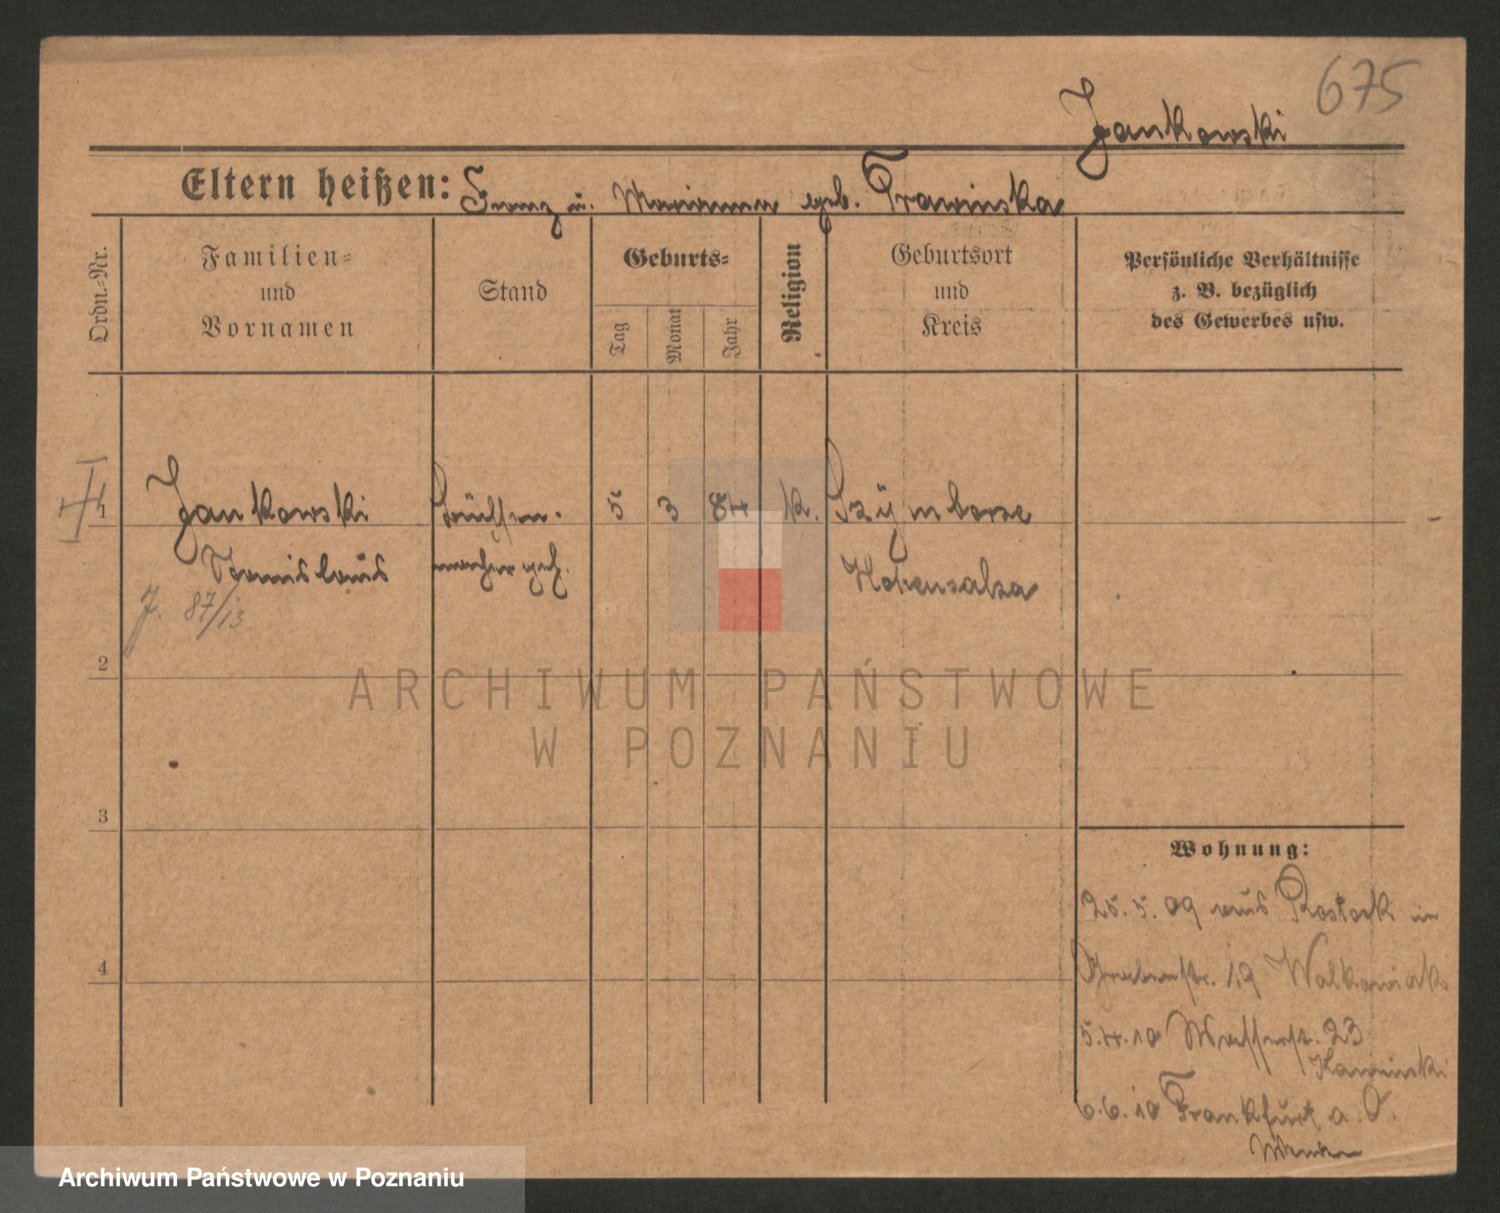 675
Jankowski
Eltern heißen: Franz u. Marianna geb. Trawinska
Ordn.-Nr.
Familien-
und
Vornamen
Stand
Geburts-
Tag
Monat
Jahr
Religion
Geburtsort
und
Kreis
Persönliche Verhältnisse
z. B. bezüglich
des Gewerbes usw.
1
Jankowski
Büchsen-
5
3
84
k.
Szÿmborze
Stanislaus
macher geh.
Hohensalza
J. 87/13
2
ARCHIWUM PAŃSTWOWE
W POZNANIU
3
Wohnung:
25. 5. 09 aus Rostock in
4
Grabenstr. 19 Walkowiak
5.4.10 Wasserstr. 23
Kaminski
6.6.10 Frankfurt a. O.
Archiwum Państwowe w Poznaniu